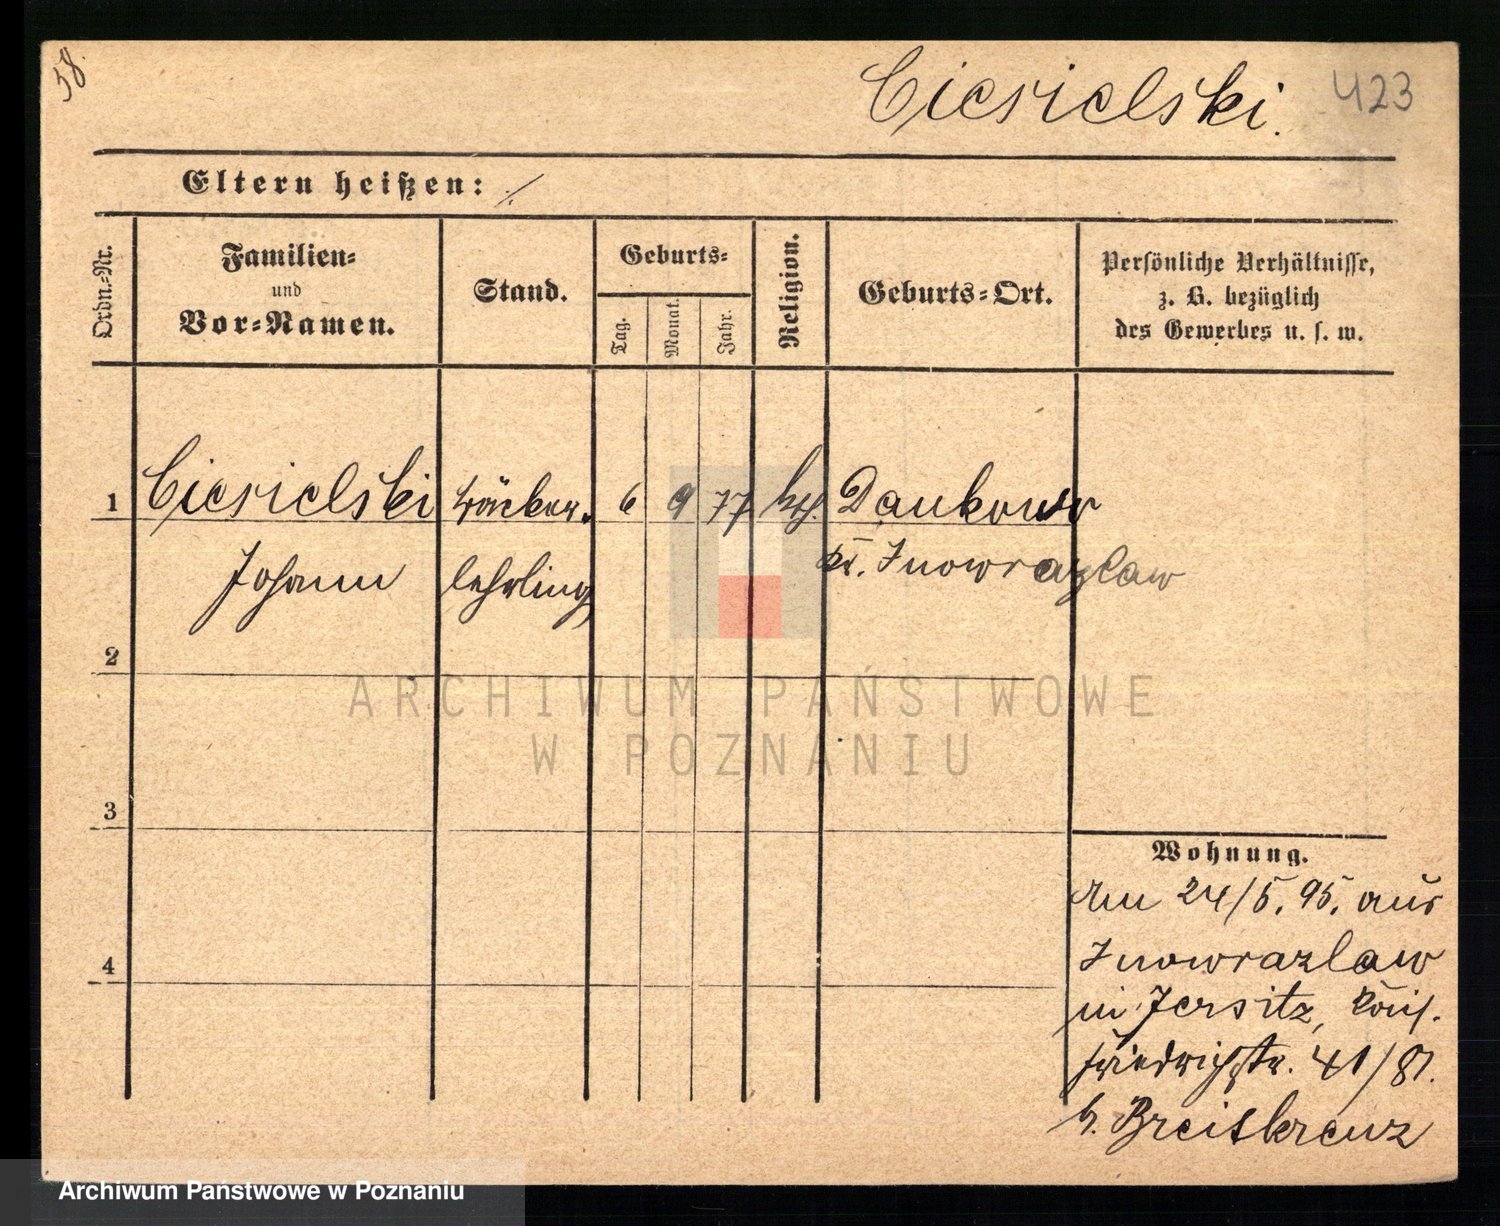 58.
Ciesielski.
423
Eltern heißen: ./.
Ordn.-Nr.
Familien-
und
Vor-Namen.
Stand.
Geburts-
Tag.
Monat.
Jahr.
Religion.
Geburts-Ort.
Persönliche Verhältnisse,
z. B. bezüglich
des Gewerbes u. s. w.
1 Ciesielski Bäcker- 6 9 77 kth. Dankowo
Johann lehrling Kr. Inowrazlaw
2
ARCHIWUM PAŃSTWOWE
W POZNANIU
3
Wohnung.
Am 24/5. 95. aus
4
Inowrazlaw
in Jersitz,
Friedrichstr. 41/81.
b. Breitkreuz
Archiwum Państwowe w Poznaniu